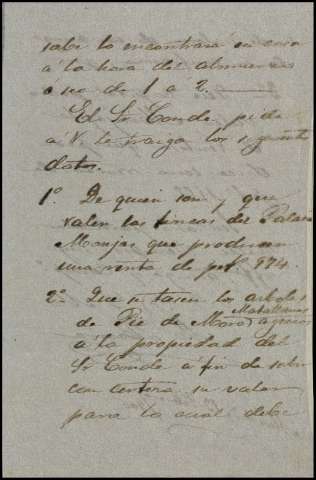 sabe lo encontrará en casa
á la hora del almuerzo
ó sea de 1 á 2.
El Sr Conde pide
á V. le traiga los siguientes
datos.
1º De quien son y que
valen las fincas del Palacio
Monjas que producen
una renta de pts 974.
2º Que se tasen los arboles
de Pie de Moro,
á la propiedad del
Sr Conde á fin de saber
con certeza su valor
para lo cual debe